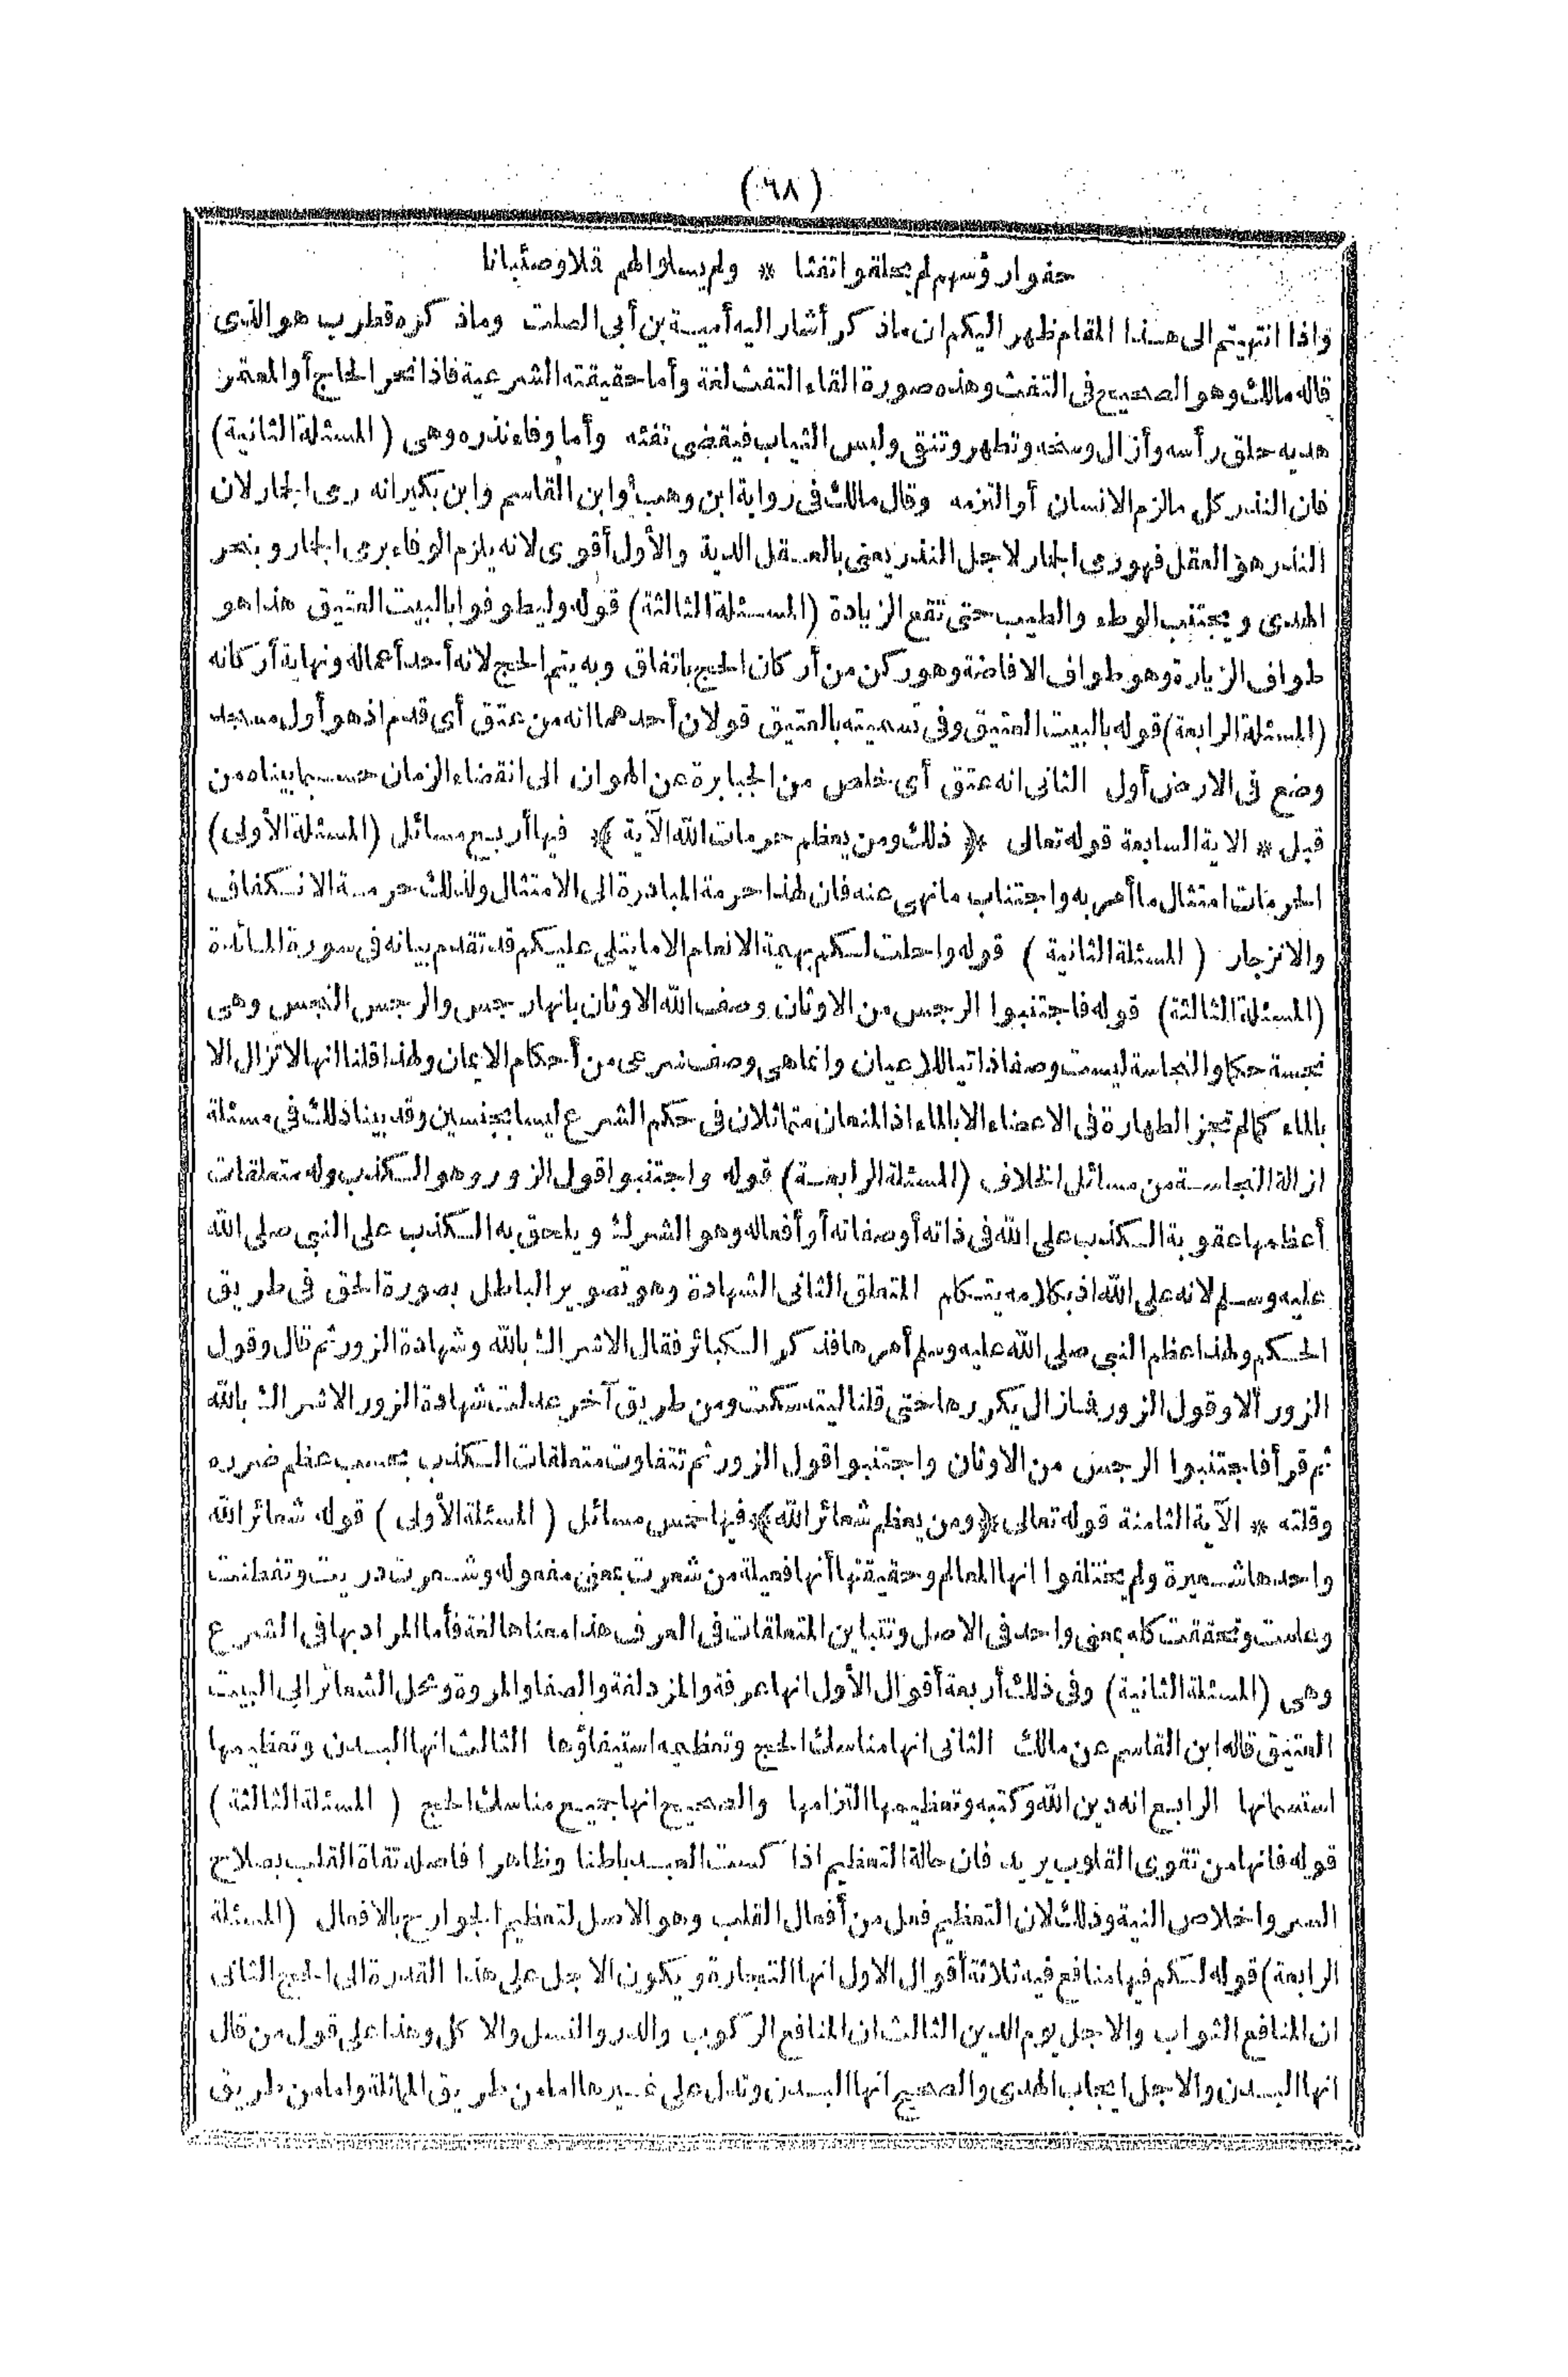 (٦٨)
حفوا رؤسهم لم يحلقوا تفثا * ولم يسلوا لهم قلا وصئبانا
واذا انتهيتم الى هذا المقام ظهر اليكم ان ماذكر أشار اليه أمية بن أبى الصلت وماذكره قطرب هو الذى
قاله مالك وهو الصحيح فى التفث وهذه صورة القاء التفث لغة وأما حقيقته الشرعية فاذا نحر الحاج أو المعتمر
هديه حلق رأسه وأزال وسخه وتطهر وتنقى ولبس الثياب فيقضى تفثه وأما وفاء نذره وهى (المسئلة الثانية)
فان النذر كل مالزم الانسان أو التزمه وقال مالك فى رواية ابن وهب وابن القاسم وابن بكير انه رمى الجمار لان
النذر هو العقل فهو رمى الجمار لاجل النذر يعنى بالعقل الدية والأول أقوى لانه يلزم الوفاء برمى الجمار وينحر
الهدى ويجتنب الوطء والطيب حتى تقع الزيادة (المسئلة الثالثة) قوله وليطوفوا بالبيت العتيق هذا هو
طواف الزيارة وهو طواف الافاضة وهو ركن من أركان الحج باتفاق وبه يتم الحج لانه أحد أعماله ونهاية أركانه
(المسئلة الرابعة) قوله بالبيت العتيق وفى تسميته بالعتيق قولان أحدهما انه من عتق أى قدم اذ هو أول مسجد
وضع فى الارض أول الثانى انه عتق أى خلص من الجبابرة عن الهوان الى انقضاء الزمان حسبما بيناه من
قبل * الاية السابعة قوله تعالى ﴿ ذلك ومن يعظم حرمات الله الآية ﴾ فيها أربع مسائل (المسئلة الأولى)
الحرمات امتثال ما أمر به واجتناب مانهى عنه فان لهذا حرمة المبادرة الى الامتثال ولذلك حرمة الانكفاف
والانزجار (المسئلة الثانية) قوله واحلت لكم بهيمة الانعام الا مايتلى عليكم قد تقدم بيانه فى سورة المائدة
(المسئلة الثالثة) قوله فاجتنبوا الرجس من الاوثان وصف الله الاوثان بانها رجس والرجس النجس وهى
نجسة حكما والنجاسة ليست وصفا ذاتيا للاعيان وانما هى وصف شرعى من أحكام الايمان ولهذا قلنا انها لا تزال الا
بالماء كما لم تجز الطهارة فى الاعضاء الا بالماء اذ المنعان متماثلان فى حكم الشرع ليسا بجنسين وقد بينا ذلك فى مسئلة
ازالة النجاسة من مسائل الخلاف (المسئلة الرابعة) قوله واجتنبوا قول الزور وهو الكذب وله متعلقات
أعظمها عقوبة الكذب على الله فى ذاته أو صفاته أو أفعاله وهو الشرك ويلحق به الكذب على النبى صلى الله
عليه وسلم لانه على الله اذ بكلامه يتكلم المتعلق الثانى الشهادة وهو تصوير الباطل بصورة الحق فى طريق
الحكم ولهذا عظم النبى صلى الله عليه وسلم أمرها فذكر الكبائر فقال الاشراك بالله وشهادة الزور ثم قال وقول
الزور ألا وقول الزور فمازال يكررها حتى قلنا ليته سكت ومن طريق آخر عدلت شهادة الزور الاشراك بالله
ثم قرأ فاجتنبوا الرجس من الاوثان واجتنبوا قول الزور ثم تتفاوت متعلقات الكذب بحسب عظم ضرره
وقلته * الآية الثامنة قوله تعالى ﴿ومن يعظم شعائر الله﴾ فيها خمس مسائل (المسئلة الأولى) قوله شعائر الله
واحدها شعيرة ولم يختلفوا انها المعالم وحقيقتها أنها فعيلة من شعرت بمعنى مفعوله وشعرت دريت وتفطنت
وعلمت وتحققت كله بمعنى واحد فى الاصل وتتباين المتعلقات فى العرف هذا معناها لغة فأما المراد بها فى الشرع
وهى (المسئلة الثانية) وفى ذلك أربعة أقوال الأول انها عرفة والمزدلفة والصفا والمروة ومحل الشعائر الى البيت
العتيق قاله ابن القاسم عن مالك الثانى انها مناسك الحج وتعظيمه استيفاؤها الثالث انها البدن وتعظيمها
استسمانها الرابع انه دين الله وكتبه وتعظيمها التزامها والصحيح انها جميع مناسك الحج (المسئلة الثالثة)
قوله فانها من تقوى القلوب يريد فان حالة التعظيم اذا كست العبد باطنا وظاهرا فاصله تقاة القلب بصلاح
السر واخلاص النية وذلك لان التعظيم فعل من أفعال القلب وهو الاصل لتعظيم الجوارح بالافعال (المسئلة
الرابعة) قوله لكم فيها منافع فيه ثلاثة أقوال الاول انها التجارة ويكون الاجل على هذا القدرة الى الحج الثانى
ان المنافع الثواب والاجل يوم الدين الثالث ان المنافع الركوب والدر والنسل والاكل وهذا على قول من قال
انها البدن والاجل ايجاب الهدى والصحيح انها البدن وتدل على غيرها اما من طريق المماثلة واما من طريق